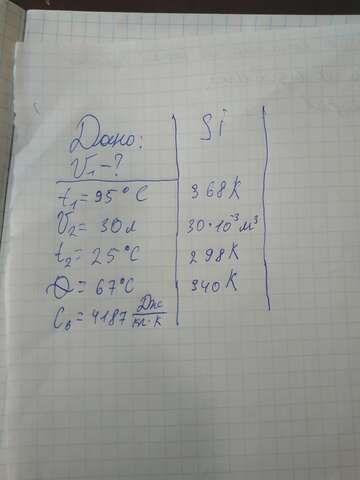 Дано:
V₁-?
t₁ = 95°C
V₂ = 30 л
t₂ = 25°C
Θ = 67°C
Cв = 4187 Дж/кг·К
Si
368 К
30·10⁻³ м³
298 К
340 К